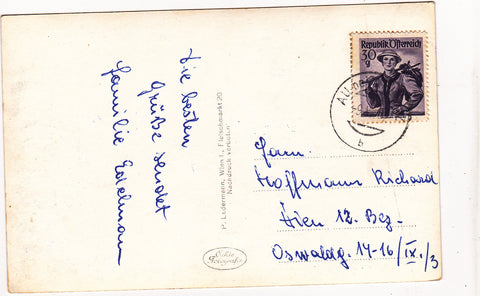 die besten
Grüße sendet
Familie Edelmann
P. Ledermann, Wien I., Fleischmarkt 20
Nachdruck verboten
Echte
Fotografie
Republik Österreich
30
g
b
Fam.
Hoffmann Richard
Wien 12. Bez.
Oswaldg. 14-16/IX./3